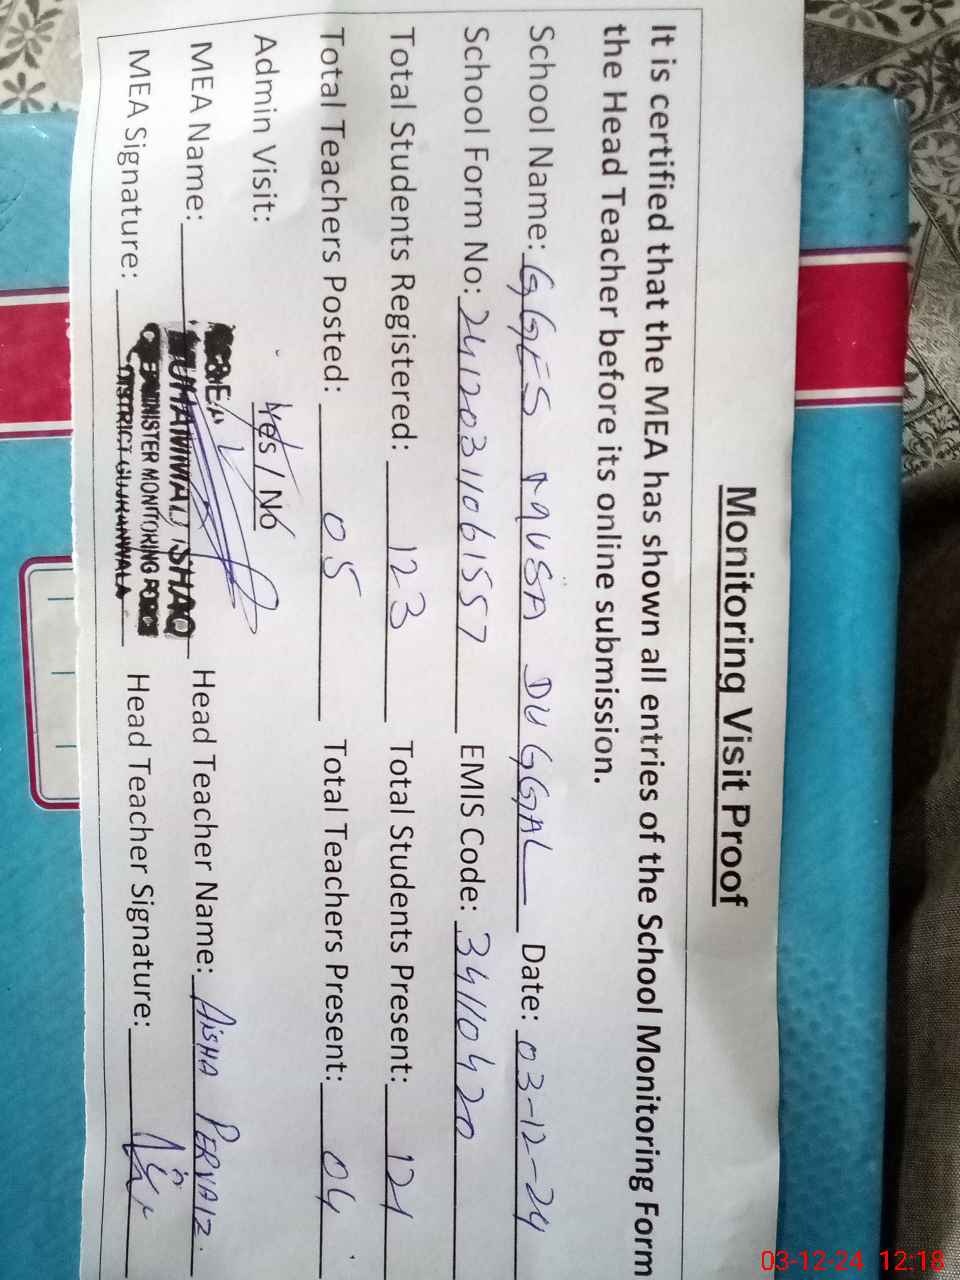 Monitoring Visit Proof
It is certified that the MEA has shown all entries of the School Monitoring Form
the Head Teacher before its online submission.
School Name: GGES MUSA DUGGAL Date: 03-12-24
School Form No: 24120311061557 EMIS Code: 34110420
Total Students Registered: 123 Total Students Present: 121
Total Teachers Posted: 05 Total Teachers Present: 04
Admin Visit: Yes / No
MEA Name: MUHAMMAD ISHAQ Head Teacher Name: AISHA PERVAIZ.
MEA Signature: MINISTER MONITORING FORCE Head Teacher Signature:
DISTRICT GUJRANWALA
03-12-24 12:18